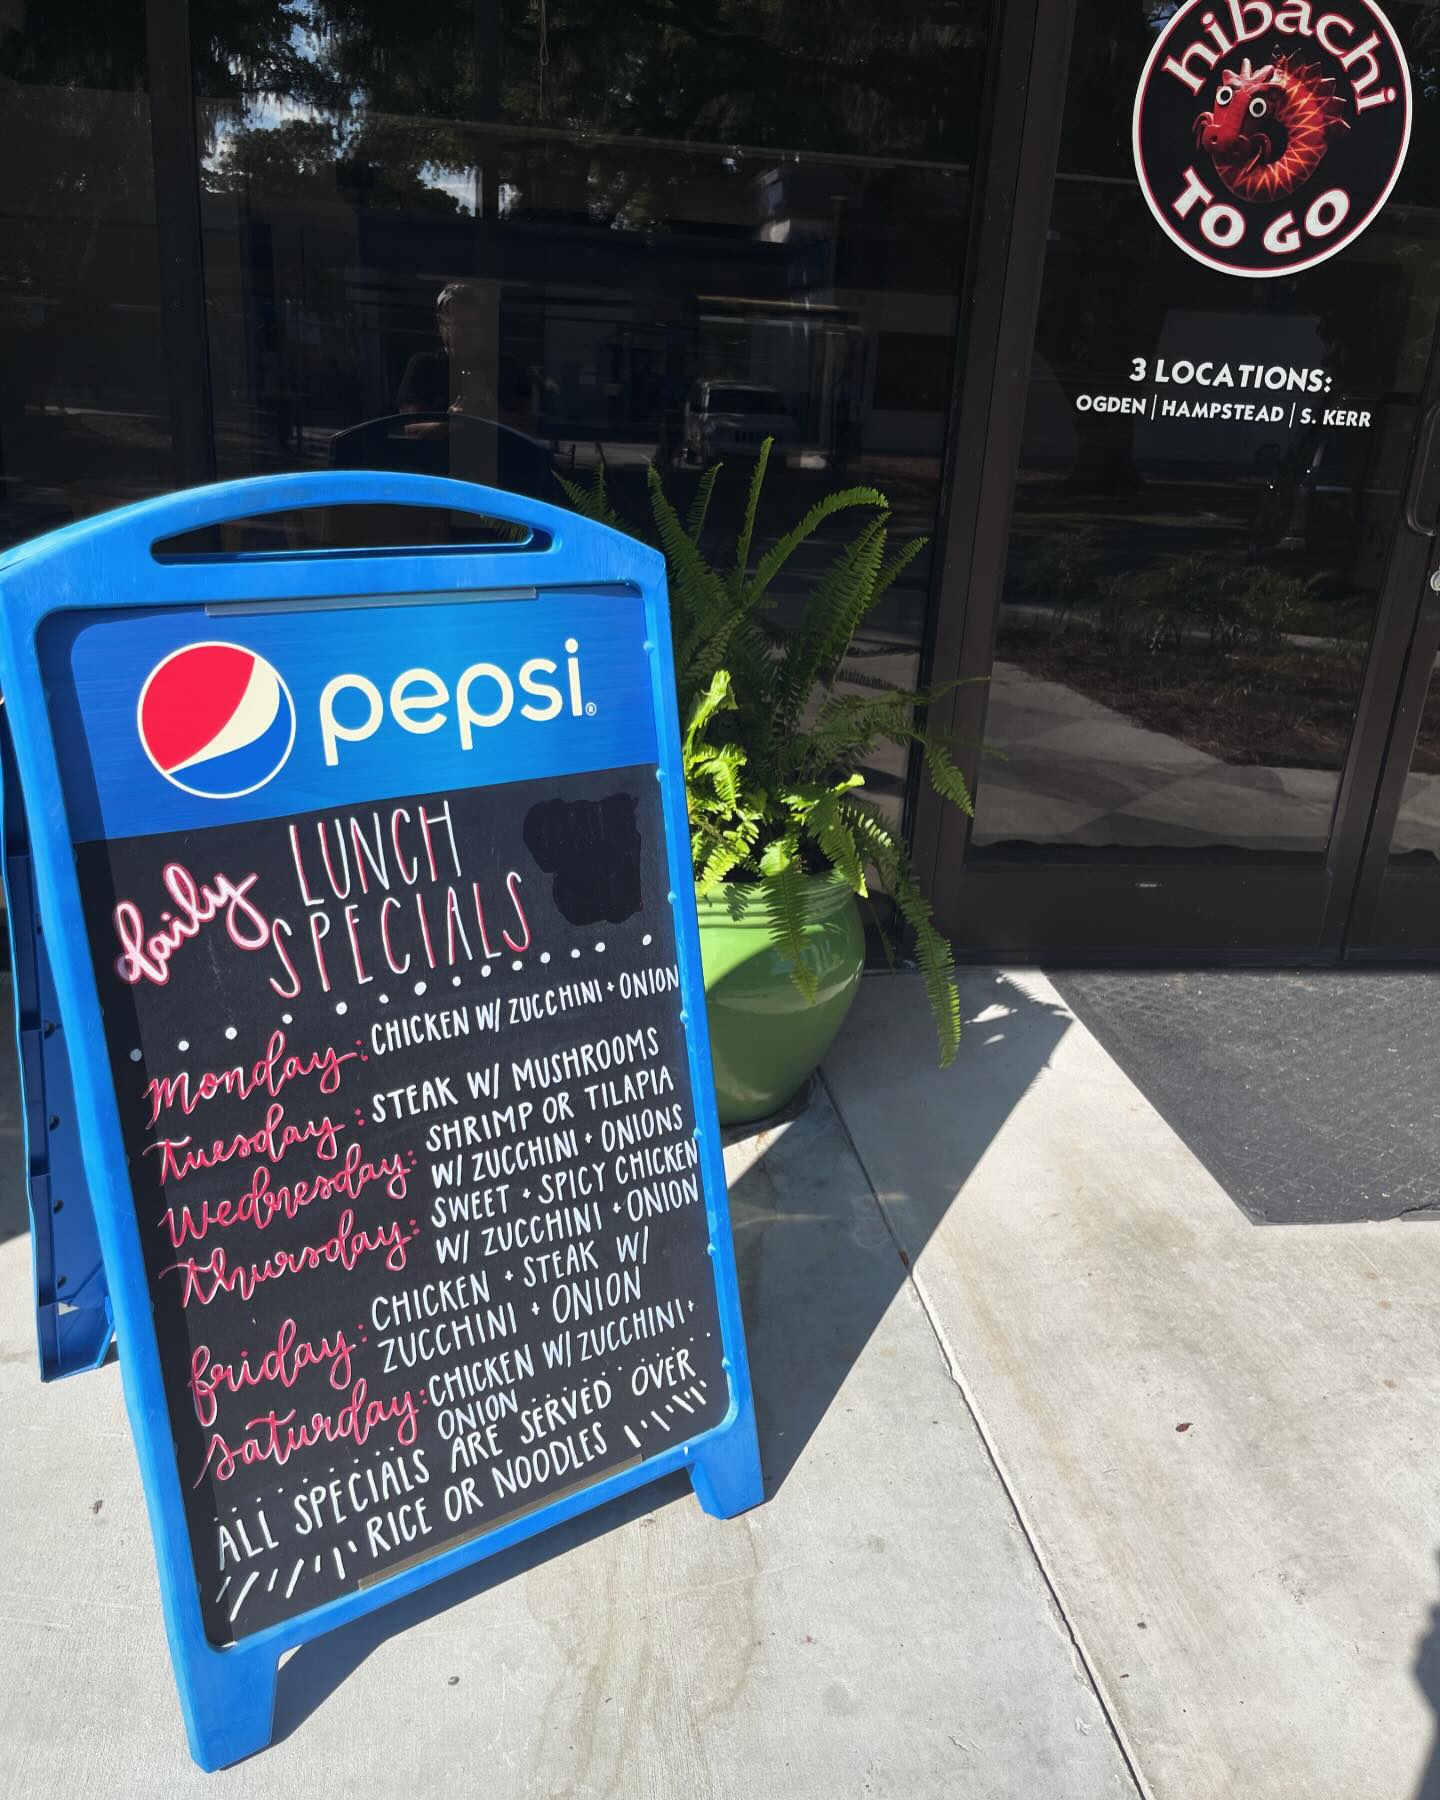 hibachi
TO GO
3 LOCATIONS:
OGDEN | HAMPSTEAD | S. KERR
pepsi®
daily LUNCH
SPECIALS
monday: CHICKEN W/ ZUCCHINI + ONION
tuesday: STEAK W/ MUSHROOMS
wednesday: SHRIMP OR TILAPIA
W/ ZUCCHINI + ONIONS
thursday: SWEET + SPICY CHICKEN
W/ ZUCCHINI + ONION
friday: CHICKEN + STEAK W/
ZUCCHINI + ONION
saturday: CHICKEN W/ ZUCCHINI +
ONION
ALL SPECIALS ARE SERVED OVER
RICE OR NOODLES